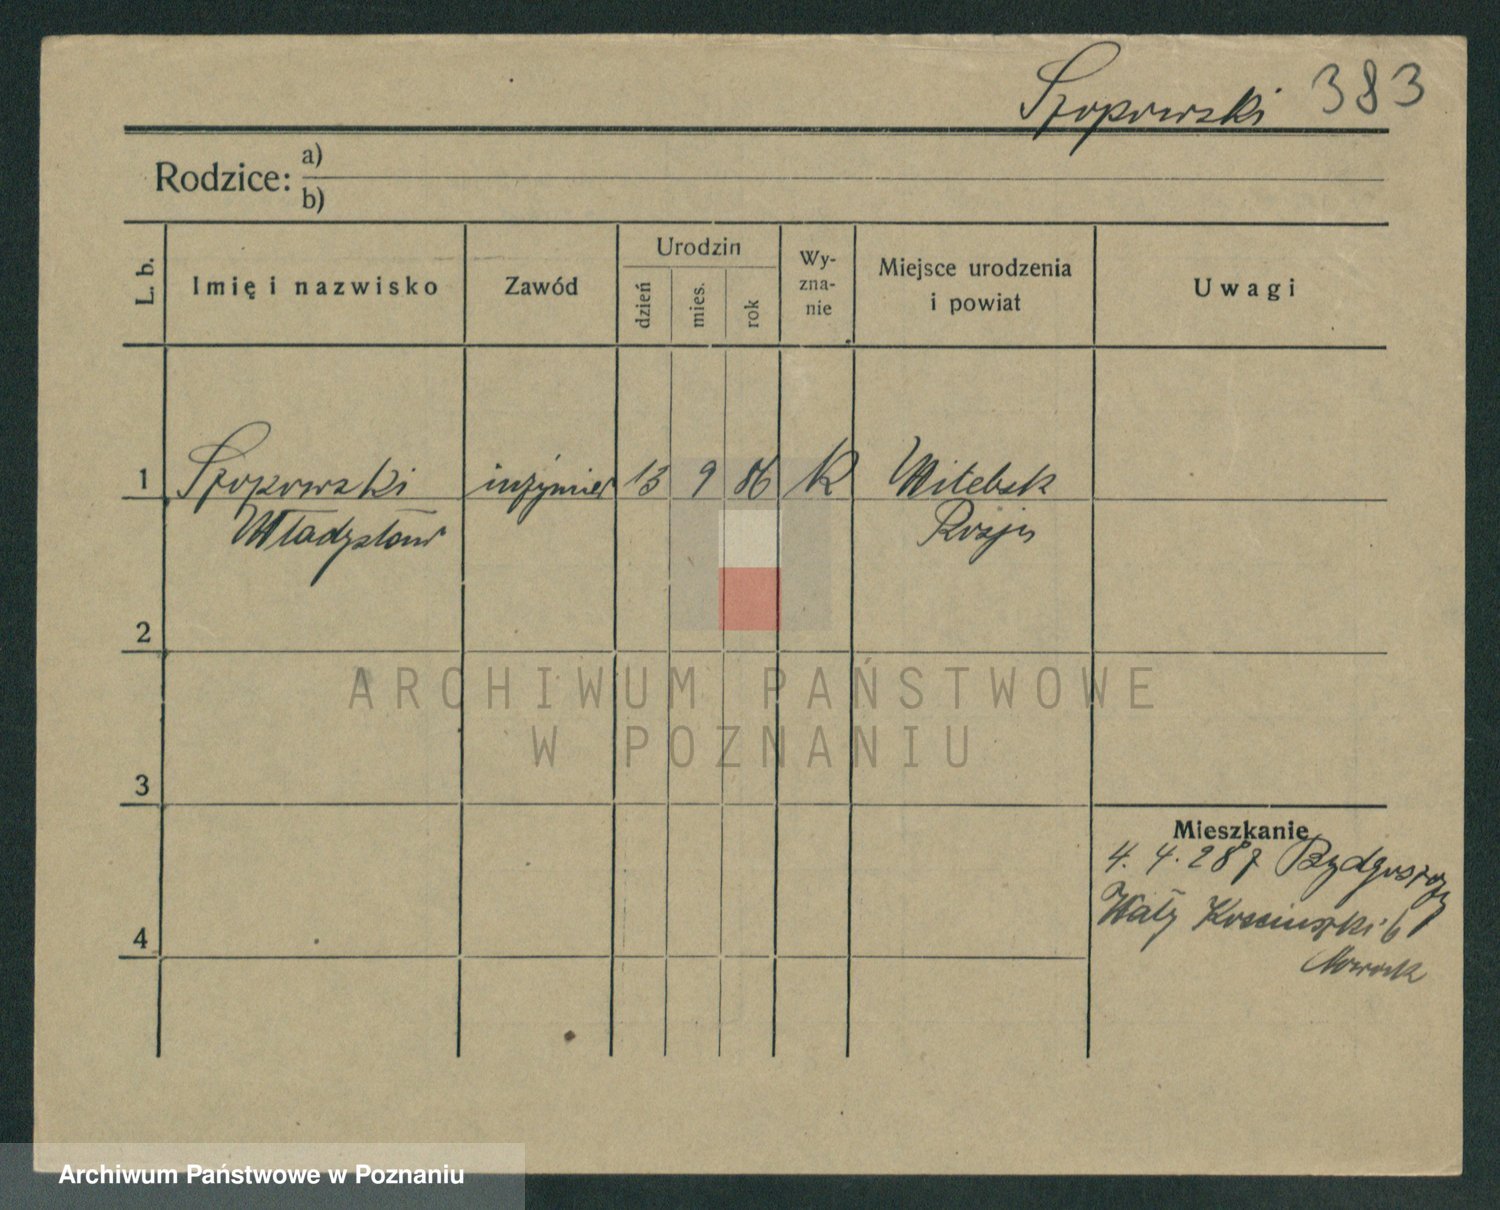 Szopowski 383
Rodzice: a)
b)
L. b.
Imię i nazwisko
Zawód
Urodzin
dzień
mies.
rok
Wy-
zna-
nie
Miejsce urodzenia
i powiat
Uwagi
1 Szopowski inżynier 13 9 86 K Witebsk
Władysław Rosja
2
ARCHIWUM PAŃSTWOWE
W POZNANIU
3
Mieszkanie
4. 4. 28 z Bydgoszczy
Wały Kościuszki 6
Nowack
4
Archiwum Państwowe w Poznaniu